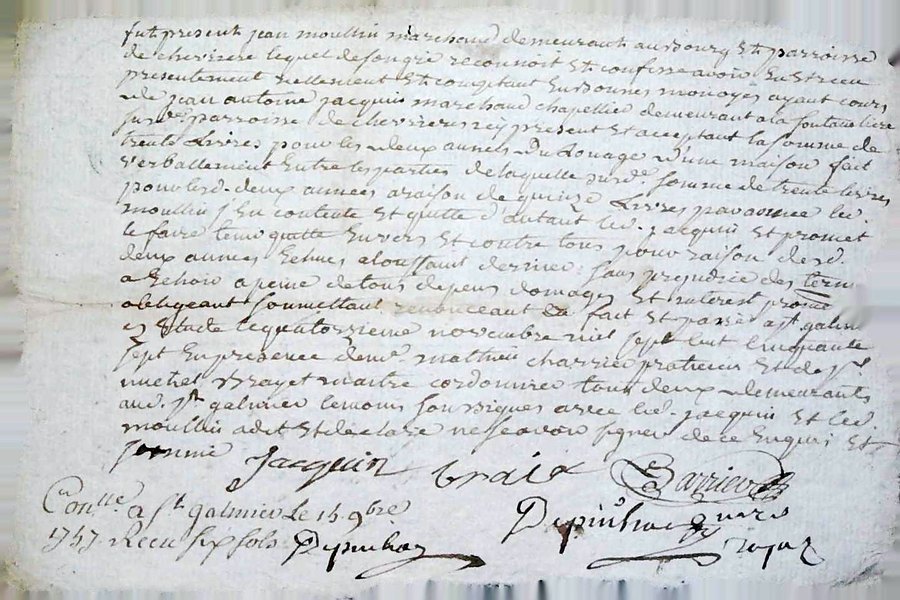 fut present jean moullin marchand demeurant au Bourg et parroisse
de chevriere lequel de son gré reconnoit et confesse avoir eu et receu
presentement réellement et comptant en bonnes monoyes ayant cours
de jean antoine jacquin marchand chapellier demeurant a la fontanliere
susd. parroisse de chevrieres icy present et acceptant la somme de
trente Livres pour les deux années du Louage d'une maison fait
verballement entre les parties de laquelle susd. somme de trente livres
pour lesd. deux années a raison de quinze Livres par année led.
moullin s'en contente et quitte d'autant led. jacquin et promet
le faire tenir quitte envers et contre tous pour raison desd.
deux années echues a la toussaint dernier sans prejudice des
a echoir a peine de tous depens domages et interest
obligeant soumettant renonceant fait et passé a st galmier
en Etude le quatorzieme novembre mil sept cent cinquante
sept en presence de mr. mathieu charrier praticien et de sr
michel maitre cordonnier tous deux demeurants
aud. st galmier temoins soussignes avec led. jacquin et led.
moullin a dit et declaré ne scavoir signer de ce enquis et
sommé
jacquin
Contlle a st galmier le 15 9bre
1757 Receu six sols